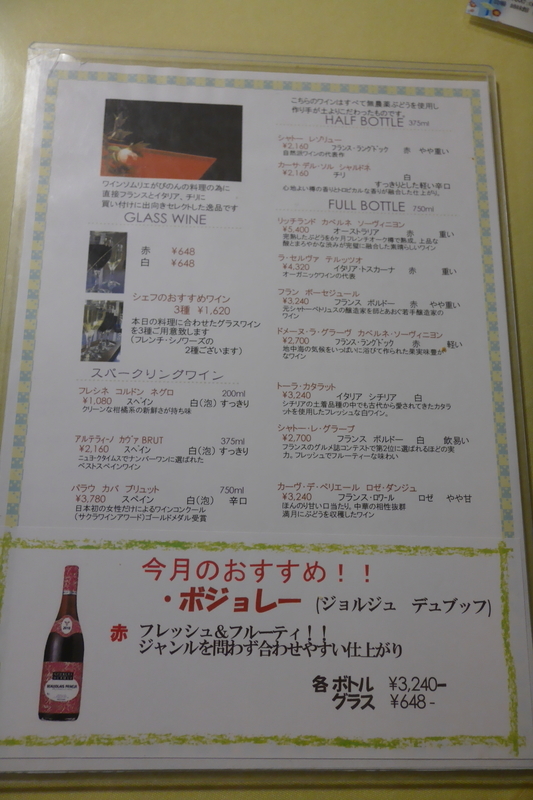 ワインソムリエがぴのんの料理の為に
直接フランスとイタリア、チリに
買い付けに出向きセレクトした逸品です
GLASS WINE
赤 ¥648
白 ¥648
シェフのおすすめワイン
3種 ¥1,620
本日の料理に合わせたグラスワイン
を3種ご用意致します
(フレンチ・シノワーズの
2種ございます)
スパークリングワイン
フレシネ コルドン ネグロ 200ml
¥1,080 スペイン 白(泡) すっきり
クリーンな柑橘系の新鮮さが持ち味
アルテラィノ カヴァ BRUT 375ml
¥2,160 スペイン 白(泡) すっきり
ニュヨークタイムスでナンバーワンに選ばれた
ベストスペインワイン
パラウ カバ ブリュット 750ml
¥3,780 スペイン 白(泡) 辛口
日本初の女性だけによるワインコンクール
(サクラワインアワード)ゴールドメダル受賞
こちらのワインはすべて無農薬ぶどうを使用し
作り手が土よりこだわったものです。
HALF BOTTLE 375ml
シャトー レゾリュー
¥2,160 フランス・ラングドック 赤 やや重い
自然派ワインの代表作
カーサ・デル・ソル シャルドネ
¥2,160 チリ 白
すっきりとした軽い辛口
心地よい樽の香りとトロピカルな香りが融合した仕上がり。
FULL BOTTLE 750ml
リッチランド カベルネ ソーヴィニヨン
¥5,400 オーストラリア 赤 重い
完熟したぶどうを6ヶ月フレンチオーク樽で熟成。上品な
酸とまろやかな渋みが完璧に融合した素晴らしいワイン
ラ・セルヴァ テルッツオ
¥4,320 イタリア・トスカーナ 赤 重い
オーガニックワインの代表
フラン ボーセジュール
¥3,240 フランス ボルドー 赤 やや重い
元シャトーペトリュスの醸造家を師とあおぐ若手醸造家の
ワイン
ドメーヌ・ラ・グラーヴ カベルネ・ソーヴィニヨン
¥2,700 フランス・ラングドック 赤 軽い
地中海の気候をいっぱいに浴びて作られた果実味豊か
なワイン
トーラ・カタラット
¥3,240 イタリア シチリア 白
シチリアの土着品種の中でも古代から愛されてきたカタラ
ットを使用したフレッシュな白ワイン。
シャトー・レ・グラーブ
¥2,700 フランス ボルドー 白 飲易い
フランスのグルメ誌コンテストで第2位に選ばれるほどの実
力。フレッシュでフルーティーな味わい
カーヴ・デ・ベリエール ロゼ・ダンジュ
¥3,240 フランス・ロワール ロゼ やや甘
ほんのり甘い口当たり。中華の相性抜群
満月にぶどうを収穫したワイン
今月のおすすめ!!
・ボジョレー (ジョルジュ デュブッフ)
赤 フレッシュ&フルーティ!!
ジャンルを問わず合わせやすい仕上がり
各 ボトル ¥3,240-
グラス ¥648-